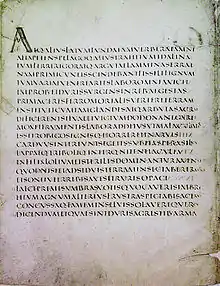 AIQALIUSLATUMFUNDAIAMVERBERATAMNE
ALTAPETENSPELAGOQALIUSTRAHITUMIDALINA
TUMFERRIRIGORATQARGUTAELAMMINASERRAE
NAMPRIMICUNEISSCINDEBANTFISSILELIGNUM
TUMVARIAEVENEREARTESLABOROMNIAVICIT
IMPROBUSETDURISURGENSINREBUSEGESTAS
PRIMACERESFERROMORTALISVERTERETERRAM
INSTITUITCUMIAMGLANDESATQARBUTASACRAE
DEFICERENTSILVAEETVICTUMDODONANEGARET
MOXETFRUMENTISLABORADDITUSUTMALACULMOS
ESSETROBIGOSEGNISQHORRERETINARVIS
CARDUUSINTEREUNTSEGETESSUBITASPERASILVA
LAPPAEQTRIBOLIQINTERQNITENTIACULTA
INFELIXLOLIUMETSTERILESDOMINANTURAVENAE
QUODNISIETADSIDUISTERRAMINSECTABERERASTRIS
ETSONITUTERREBISAVESETRURISOPACI
FALCEPREMESUMBRASVOTISQVOCAVERISIMBRE
HEUMAGNUMALTERIUSFRUSTRASPECTABISACERVUM
CONCUSSAQFAMEMINSILVISSOLABEREQUERCU
DICENDUMETQUAESINTDURISAGRESTIBARMA